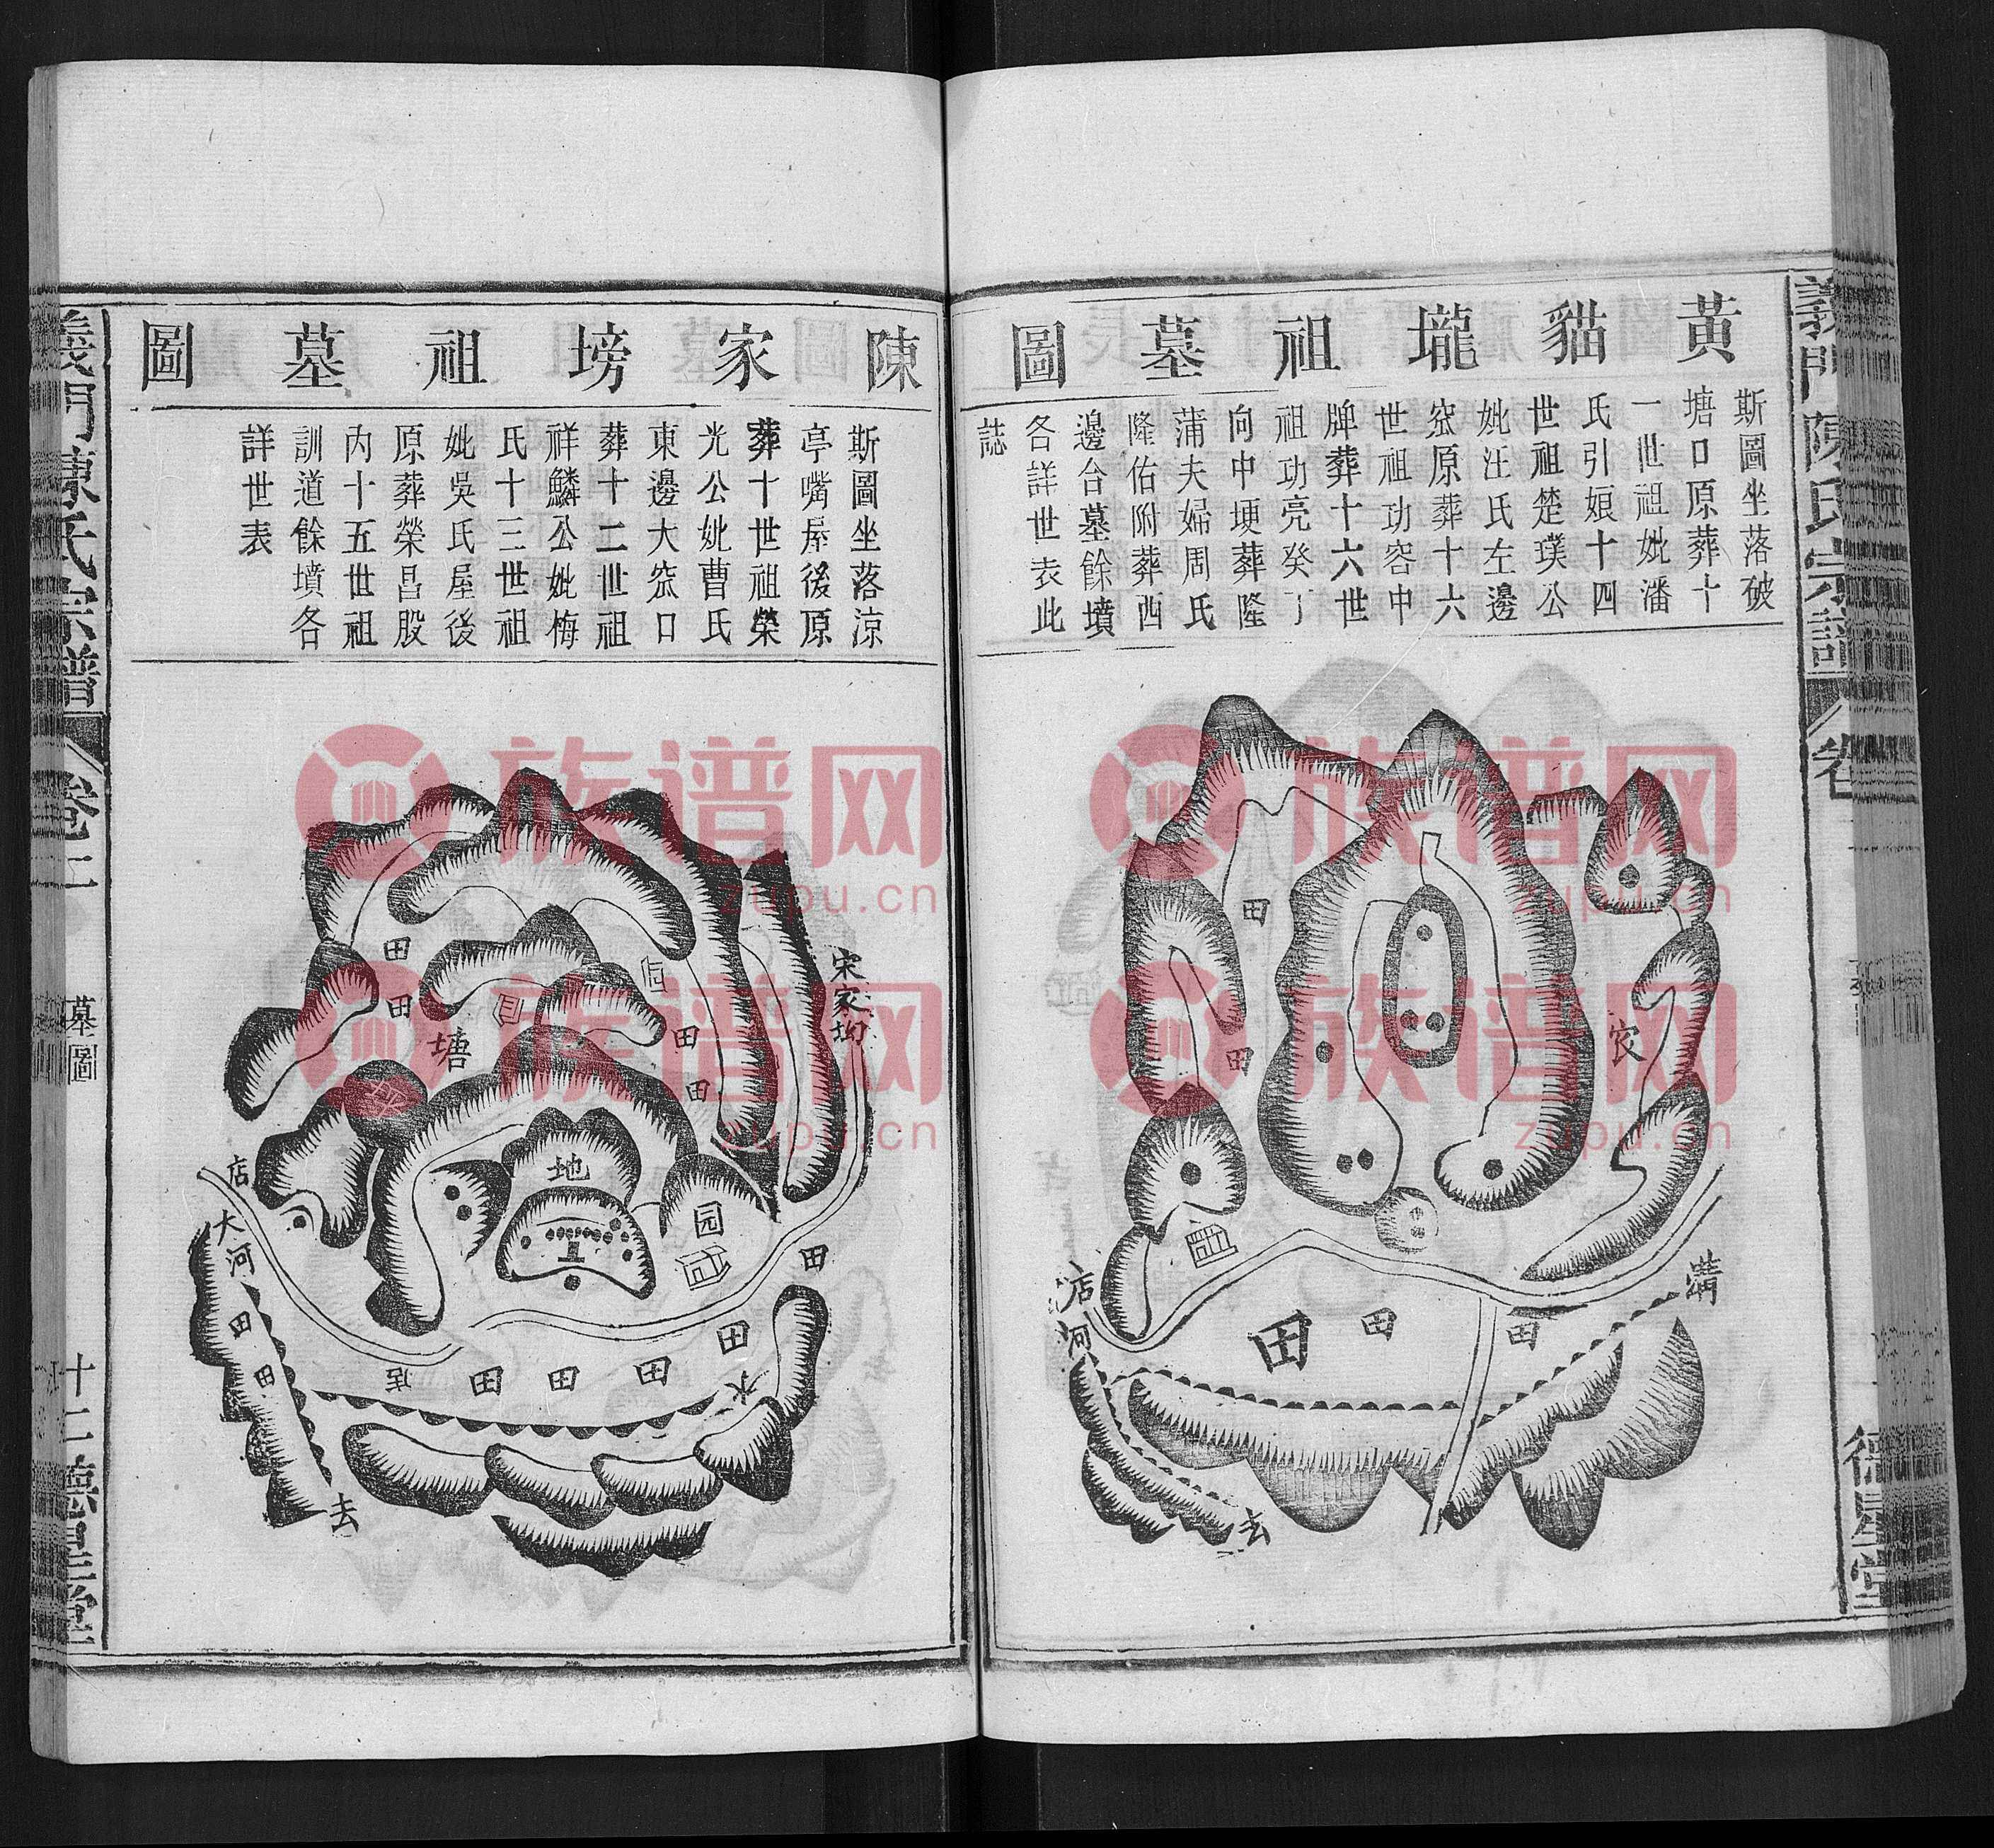 義門陳氏宗譜
黃貓壠祖墓圖
斯圖坐落破
塘口原葬十
一世祖妣潘
氏引娘十四
世祖楚璞公
妣汪氏左邊
窊原葬十六
世祖功容中
牌葬十六世
祖功亮癸丁
向中埂葬隆
蒲夫婦周氏
隆佑附葬西
邊台墓餘墳
各詳世表此
誌
田
田
農
店
河
田
田
田
去
德星堂
陳家塝祖墓圖
斯圖坐落涼
亭嘴屋後原
葬十世祖榮
光公妣曹氏
東邊大窊口
葬十二世祖
祥鱗公妣梅
氏十三世祖
妣吳氏屋後
原葬榮昌股
內十五世祖
訓道餘墳各
詳世表
宋家坳
田
田
塘
田
田
地
园
店
大河
田
田
田
田
田
田
田
店
水
去
義門陳氏宗譜
卷二
墓圖
十二
德星堂
族谱网
zupu.cn
族谱网
zupu.cn
族谱网
zupu.cn
族谱网
zupu.cn